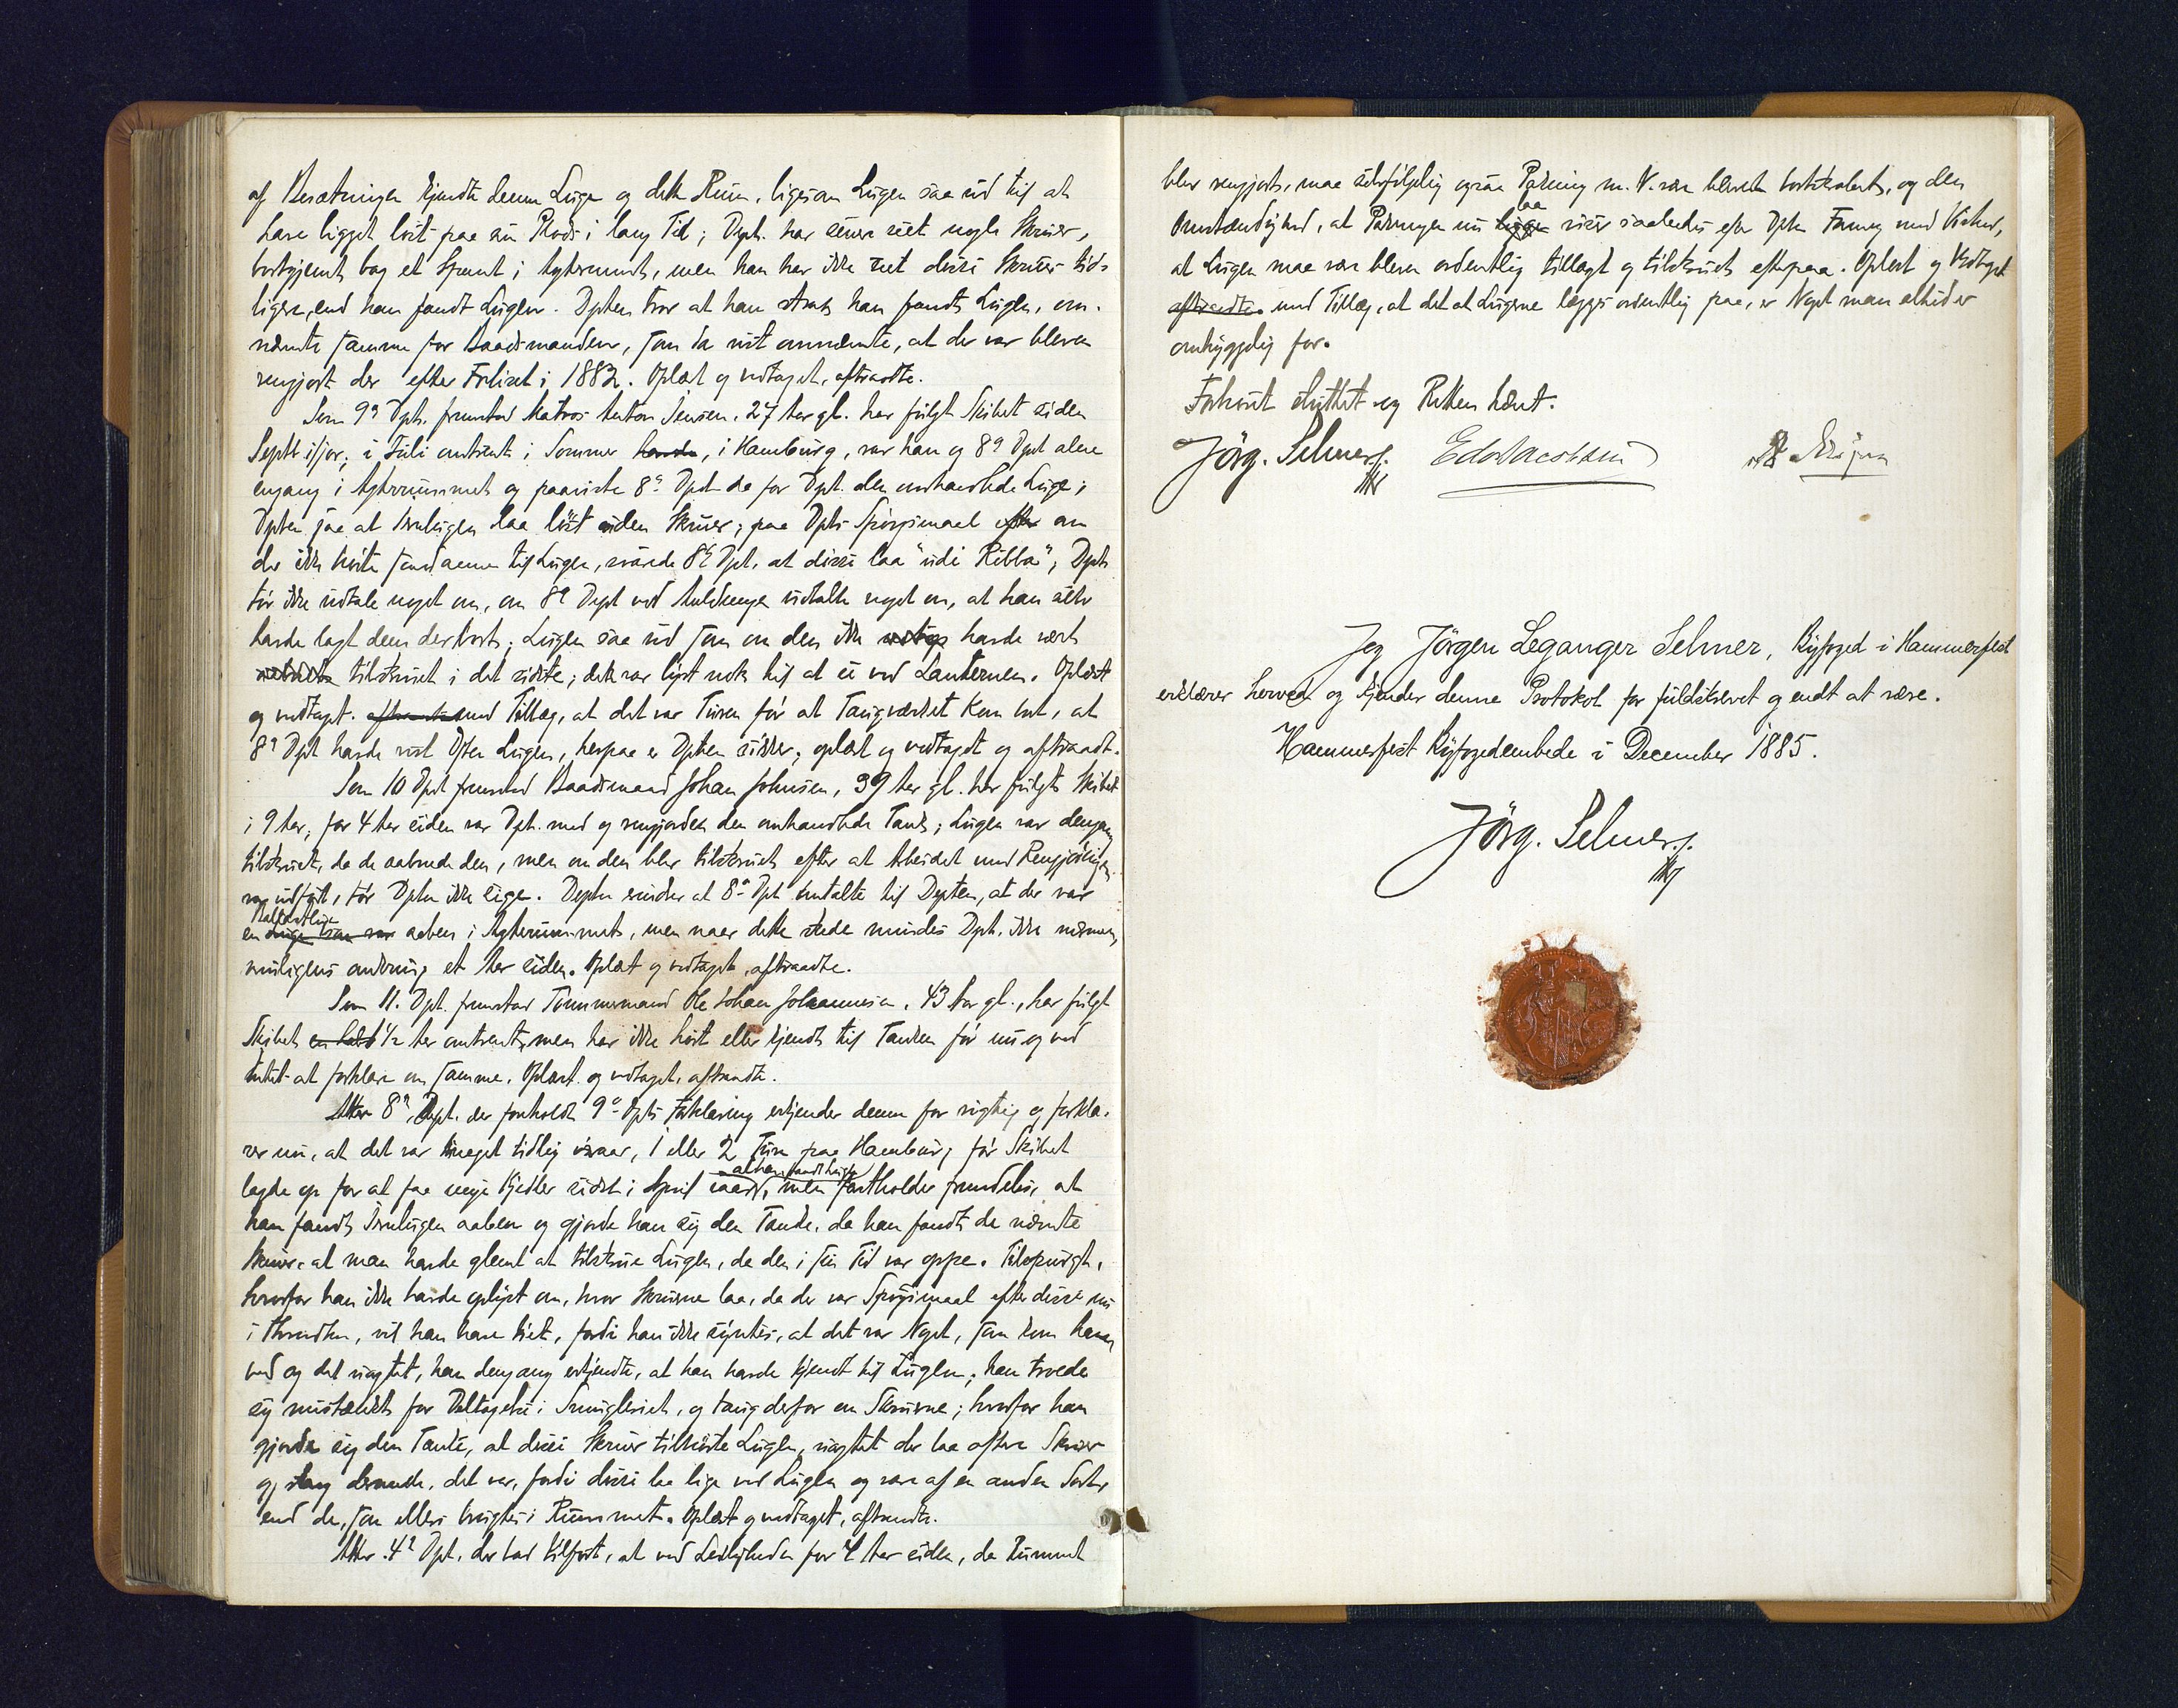 af Besætningen kjendte denne Luge og dette Rum, ligesom Lugen saa ud til at
have ligget löst paa sin Plads i lang Tid; Dept. har senere seet nogle Skruer,
bortgjemt bag et Spant i Agterrummet, men han har ikke seet disse Skruer tid-
ligere, end han fandt Lugen. Dpten tror at han strax han fandt Lugen, om-
nævnte samme for Baadsmanden, som da nöt omnævnte, at der var bleven
rengjort der efter Forliset i 1882. Oplæst og vedtaget, aftraadte.
Som 9de Dpt. fremstod Matros Anton Jensen, 27 Aar gl. har fulgt Skibet siden
Septbr ifjor; i Juli omtrent i Sommer havde, i Hamburg, var han og 8de Dpt alene
engang i Agterrummet og paaviste 8de Dpt da for Dpt. den omhandlede Luge;
Dpten saa at Jernlugen laa löst uden Skruer; paa Dpts Spörgsmaal efter om
der ikke hörte Skruer til Lugen, svarede 8de Dpt, at disse laa "udi Ribba"; Dpt
tör ikke udtale noget om, om 8de Dept ved Anledningen udtalte noget om, at han selv
havde lagt dem derbort; Lugen saa ud som om den ikke havde været
tilskruet i det sidste; det var lyst nok til at se ved Lanternen. Oplæst
og vedtaget. aftraadte med Tillæg, at det var Turen för at Taugværket kom bort, at
8de Dpt havde vist Dpten Lugen, herpaa er Dpten sikker; oplæst og vedtaget og aftraadt.
Som 10 Dpt fremstod Baadsmand Johan Johnsen, 39 Aar gl. har fulgt Skibet
i 9 Aar; for 4 Aar siden var Dpt. med og rengjorde den omhandlede Tank; Lugen var dengang
tilskruet, da de aabnede den, men om den blev tilskruet efter at Arbeidet med Rengjöringen
var udfört, tör Dpten ikke sige. Depten erindrer at 8de Dpt omtalte til Depten, at der var
Ballastluge
en Luge som var aaben i Agterrummet, men naar dette skede mindes Dpt. ikke nærmere,
muligens omkring et Aar siden. Oplæst og vedtaget, aftraadte.
Som 11. Dpt. fremstod Tömmermand Ole Johan Johannesen, 43 Aar gl., har fulgt
Skibet en halv 1/2 Aar omtrent, men har ikke hört eller kjendt til Tanken för nu og ved
intet at forklare om samme. Oplæst og vedtaget, aftraadte.
Atter 8de Dept. der foreholdt 9de Dpts Forklaring erkjender denne for rigtig og forkla-
rer nu, at det var meget tidlig ivaar, 1 eller 2 Ture paa Hamburg för Skibet
at han fandt Lugen
lagde op for at faa nye Kjedler sidst i April saavidt, men fastholder fremdeles, at
han fandt Jernlugen aaben og gjorde han sig den Tanke, da han fandt de nævnte
Skruer, at man havde glemt at tilskrue Lugen, da den i sin Tid var oppe. Tilspurgt,
hvorfor han ikke havde oplyst om, hvor Skruerne laa, da der var Spörgsmaal efter disse nu
i Throndhjem, vil han have tiet, fordi han ikke syntes, at det var Noget, som kom ham
ved og det uagtet, han dengang erkjendte, at han havde kjendt til Lugen; han troede
sig mistænkt for Deltagelse i Smugleriet, og taug derfor om Skruerne; hvorfor han
gjorde sig den Tanke, at disse Skruer tilhörte Lugen, uagtet der laa oftere Skruer
og Slag dernede, det var, fordi disse laa lige ved Lugen og vare af en anden Sort,
end de, som ellers brugtes i Rummet. Oplæst og vedtaget, aftraadte.
Atter 4de Dpt. der bad tilföiet, at ved Leiligheden for 4 Aar siden, da Rummet
blev rengjort, maa selvfölgelig ogsaa Pakning m. V. være blevet bortskabet, og den
laa
Omstændighed, at Pakningen nu ligger viser saaledes efter Dpten Formening med Vished,
at Lugen maa være bleven ordentlig tillagt og tilskruet efterpaa. Oplæst og Vedtaget
aftraadte. med Tillæg, at det at Lugerne lægges ordentlig paa, er Noget man altid er
omhyggelig for.
Forhöret sluttet og Retten hævet.
Jörg. Selmer. Edv Jacobsen
Jeg Jörgen Leganger Selmer, Byfoged i Hammerfest
erklærer herved og kjender denne Protokol for fuldskrevet og endt at være.
Hammerfest Byfogedembede i December 1885.
Jörg. Selmer.